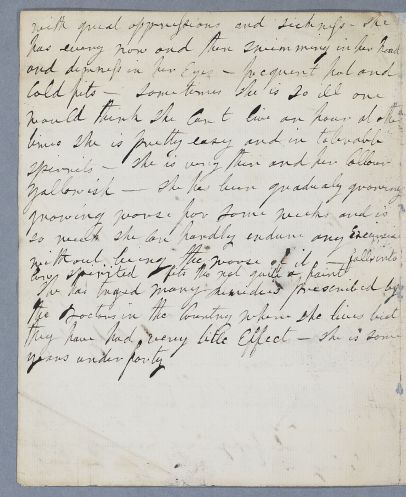 with great oppressions and sickness - she
has every now and then swimming in her head
and dimness in her Eyes - frequent hot and
Cold fits - Sometimes she is so ill one
would think she Can't live an hour at othe
times she is pretty easy and in tolerable
spirrits - she is very thin and her Collour
yallowish - she has been gradualy growing
growing worse for some weeks and is
so weak she Can hardly endure any Excercise
without being the worse of it - falls into
low spirrited fits tho not quite a faint
She has tryed many remidies prescribed by
the Doctors in the Country where she lives but
they have had very little Effect - she is some
years under forty